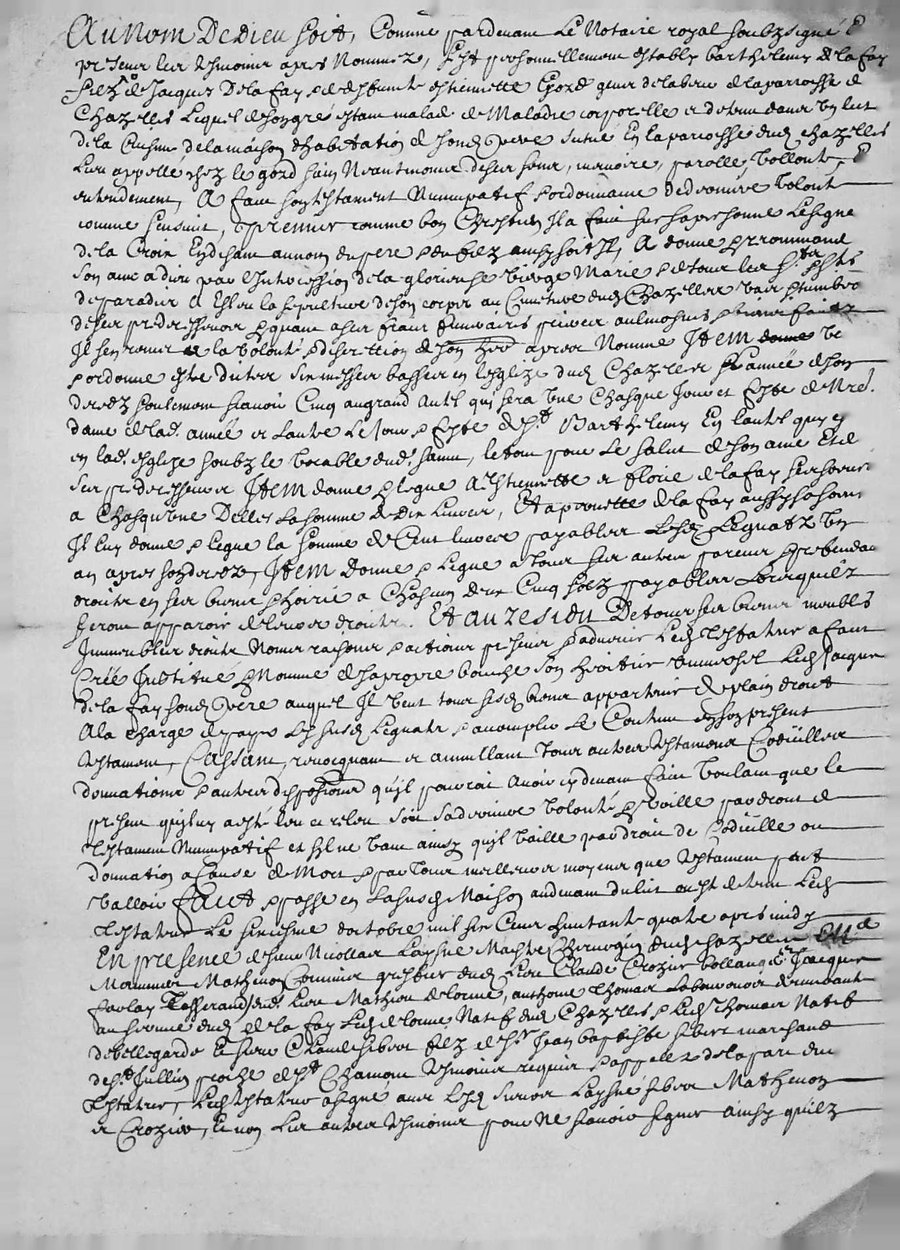 Au Nom De Dieu soit, Comme pardevant Le Notaire royal soubzsigné &
presens les tesmoins apres Nommez, s'est personnellement estably barthelemy de la fay
filz de Jacques De la fay & de deffuncte estiennette de la parroisse de
Chazelles Lequel de son gré estant malade de Maladie corporelle et detenu dans un lict
de la Cuisine de la maison d'habitation de sond pere scitué En la parroisse dud chazelles
Lieu appellé chez le gord sain Neantmoins de ses sens, memoire, parolle, vollonté, &
entendement, A faict son testament Nuncupatif & ordonnance de derniere volonté
comme sensuit, & premier comme bon Chrestien Il a faict sur sa personne Le signe
de la Croix En disant au nom du pere & du filz ainsy soit Il, A donné & recommandé
son ame a dieu par L'Intercession de la glorieuse vierge Marie & de tous les sts & stes
de paradis a Esleu la sepulture de son corps au Cimetiere dud Chazelles vas & tumbeo
de ses predecesseurs & quant a ses fraix funeraires aulmosnes &
Il s'en remet a la volonté & discrettion de son her apres Nommé Item veut
& ordonne estre dictes six messes basses en l'esglize dud Chazelles l'année de son
deces seulement scavoir Cinq au grand Autel qui sera une Chasque Jour et feste de Nre
dame de lad. année et l'autre Le Jour & feste de st Barthelemy En l'autel quy est
en lad. esglize soubz le vocable dud. sainct, le tout pour Le salut de son ame et de
ses predecesseurs Item donne & legue A estiennette et florie de la fay ses soeurs
a Chasquune Delles La somme de Dix Livres, Et a pernette de la fay aussy sa soeur
Il luy donne & legue la somme de Cent livres payables Lesd Legnatz Un
an apres son deces, Item Donne & Legue a tous ses autres parens & pretendans
droitz en ses biens & hoirie a Chascun deux Cinq solz payables Lorsquilz
feront apparoir de leurs droitz. Et au residu De tous ses biens meubles
Immeubles droitz Noms raisons & actions presens & advenir Led testateur a faict
Créé Institué & Nommé de sa propre bouche son heritier universel Led Jacques
de la fay sond pere auquel Il veut tous sesd biens appartenir de plain droict
A la charge de payer Les susd Legnatz & accomplir Le Contenu en son present
testament, Cassant, revocquant et annullant tous autres testamens Codicilles
donnations & autres dispositions qu'il pourroit Avoir cy devant faict voulant que le
present quy luy a esté leu et releu soit sa derniere volonté & vaille par droit de
testament Nuncupatif et s'il ne vaut ainsy qu'il vaille par droit de Codicille ou
donnation a Cause de Mort & par tous meilleurs moyens que testament peut
valloir faict & passé en La susd Maison au devant du lict ou est detenu Led
testateur Le huictiesme d'octobre mil six Cens Quatre apres midy
En presence de sieur Nicollas Laysné Maistre Chirurgien dud chazelles
Mathevon Commis greffier dud Lieu Claude Crozier Jacques
farlay Tisserand dud Lieu Mathieu delorme, anthoine Thomas Laboureur demeurant
au service dud de la fay Led delorme Natif dud Chazelles & Led Thomas Natif
de bellegarde Le sieur Claude siber filz de sr Jean baptiste siber marchand
de st Jullin proche de st Chamon tesmoins requis & appellez de la part dud
testateur, Led testateur a signé avec Lesd sieurs Laysné siber Mathevon
et Crozier, Et non Les autres tesmoins pour Ne scavoir signer ainsy quilz